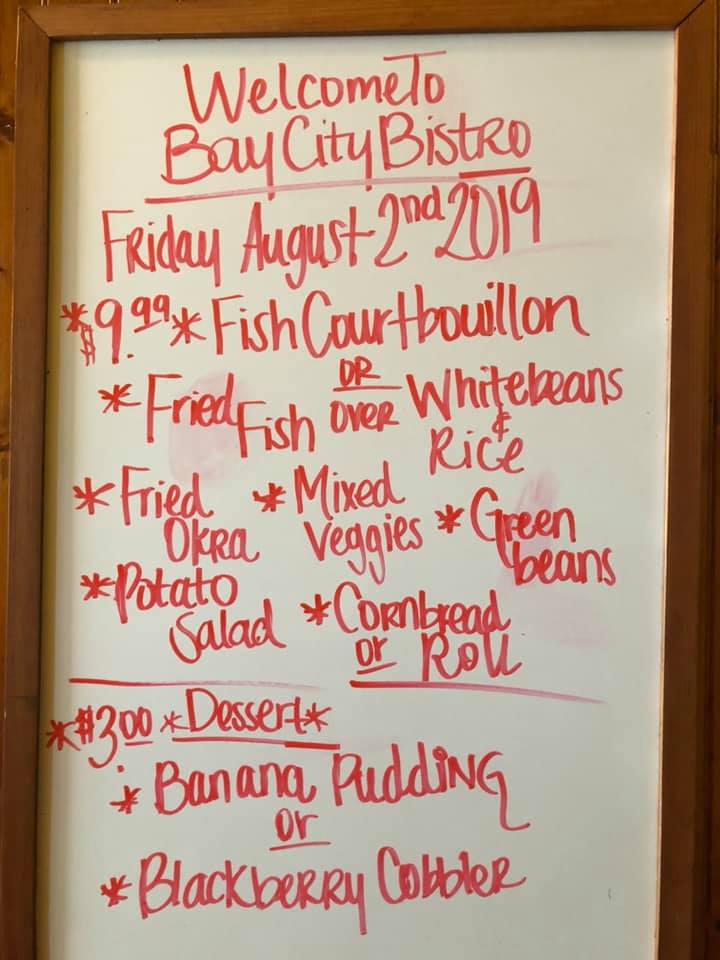 Welcome To
Bay City Bistro
Friday August 2nd 2019
*$9.99* Fish Courtbouillon
or
* Fried Fish over Whitebeans
& Rice
* Fried Okra * Mixed Veggies * Green beans
* Potato Salad * Cornbread
or Roll
*$3.00 *Dessert*
* Banana Pudding
or
* Blackberry Cobbler